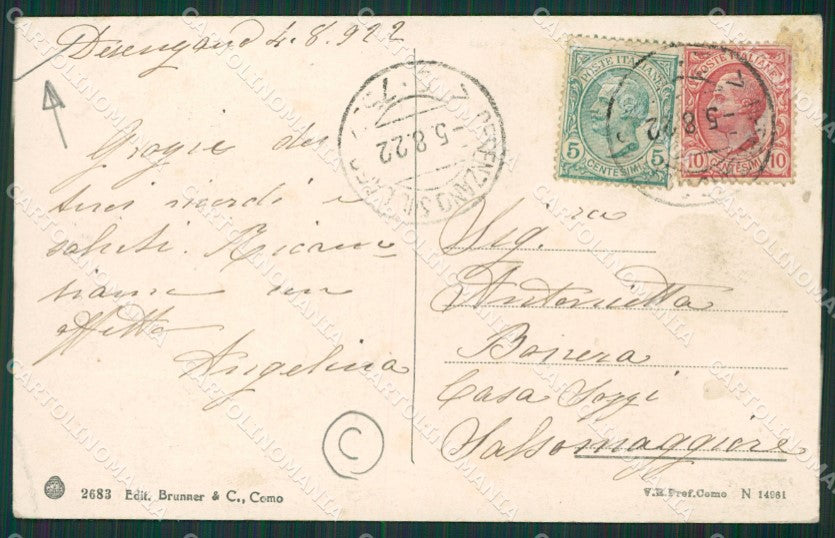 Desenzano 4.8.922
Grazie dei
tuoi ricordi e
saluti. Ricam-
biamo con
affetto
Angelina
DESENZANO SUL LAGO
-5.8.22
POSTE ITALIANE
5 5
CENTESIMI
POSTE ITALIANE
10 10
CENTESIMI
-5.8.22
Sig.ra
Antonietta
Bonera
Casa
Salsomaggiore
C
2683 Edit. Brunner & C., Como
V.R.Pref.Como N 14961
CARTOLINOMANIA